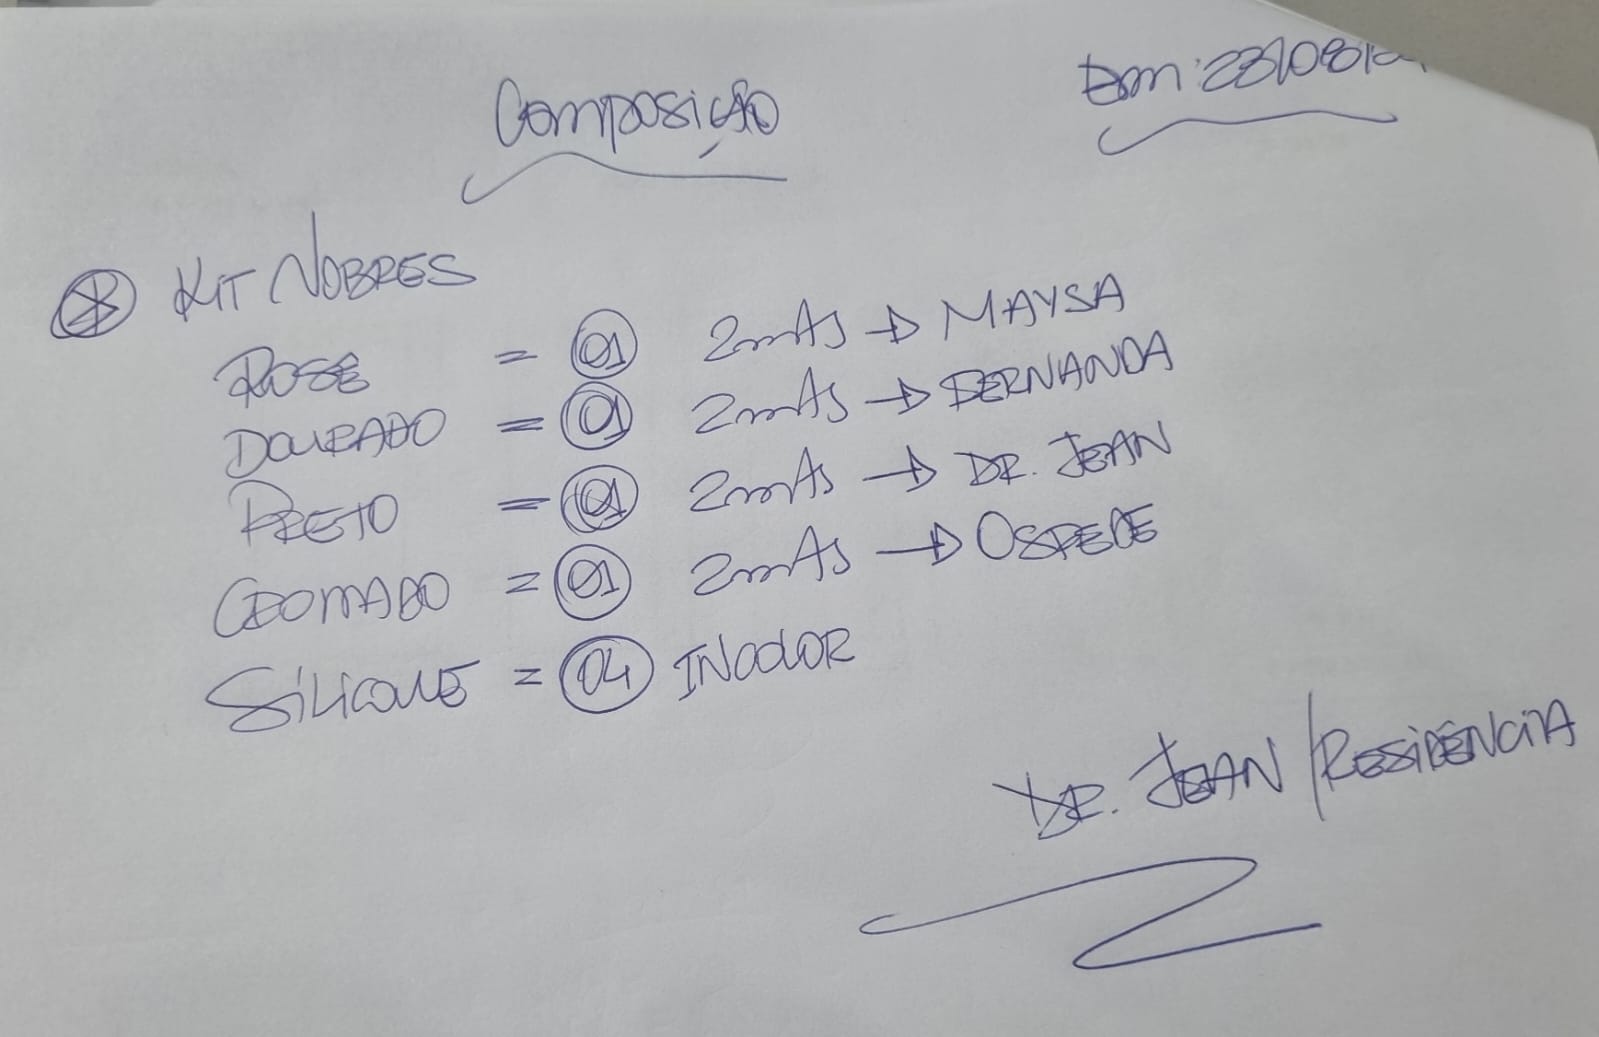 Composição
Em: 23/08/2
KIT NOBRES
ROSE = 01 2mts → MAYSA
DOURADO = 01 2mts → FERNANDA
PRETO = 01 2mts → DR. JEAN
CROMADO = 01 2mts → OSPEDE
SILICONE = 04 INCOLOR
DR. JEAN / RESIDÊNCIA